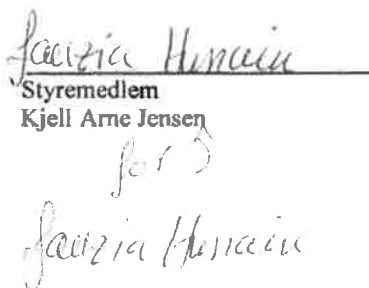 Fauzia Hussain
Styremedlem
Kjell Arne Jensen
for
Fauzia Hussain